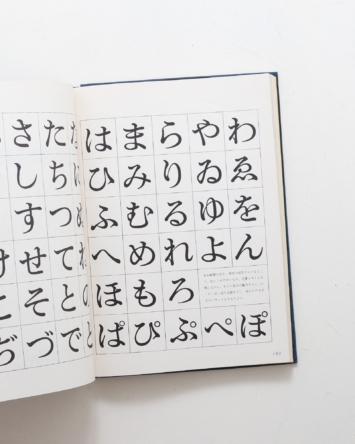 さ た な
は ま ら や わ
し ち に
ひ み り ゐ ゑ
す つ ぬ
ふ む る ゆ を
け せ て ね
へ め れ よ ん
こ そ と の
ほ も ろ
ぢ づ で ど
ぱ ぴ ぷ ぺ ぽ